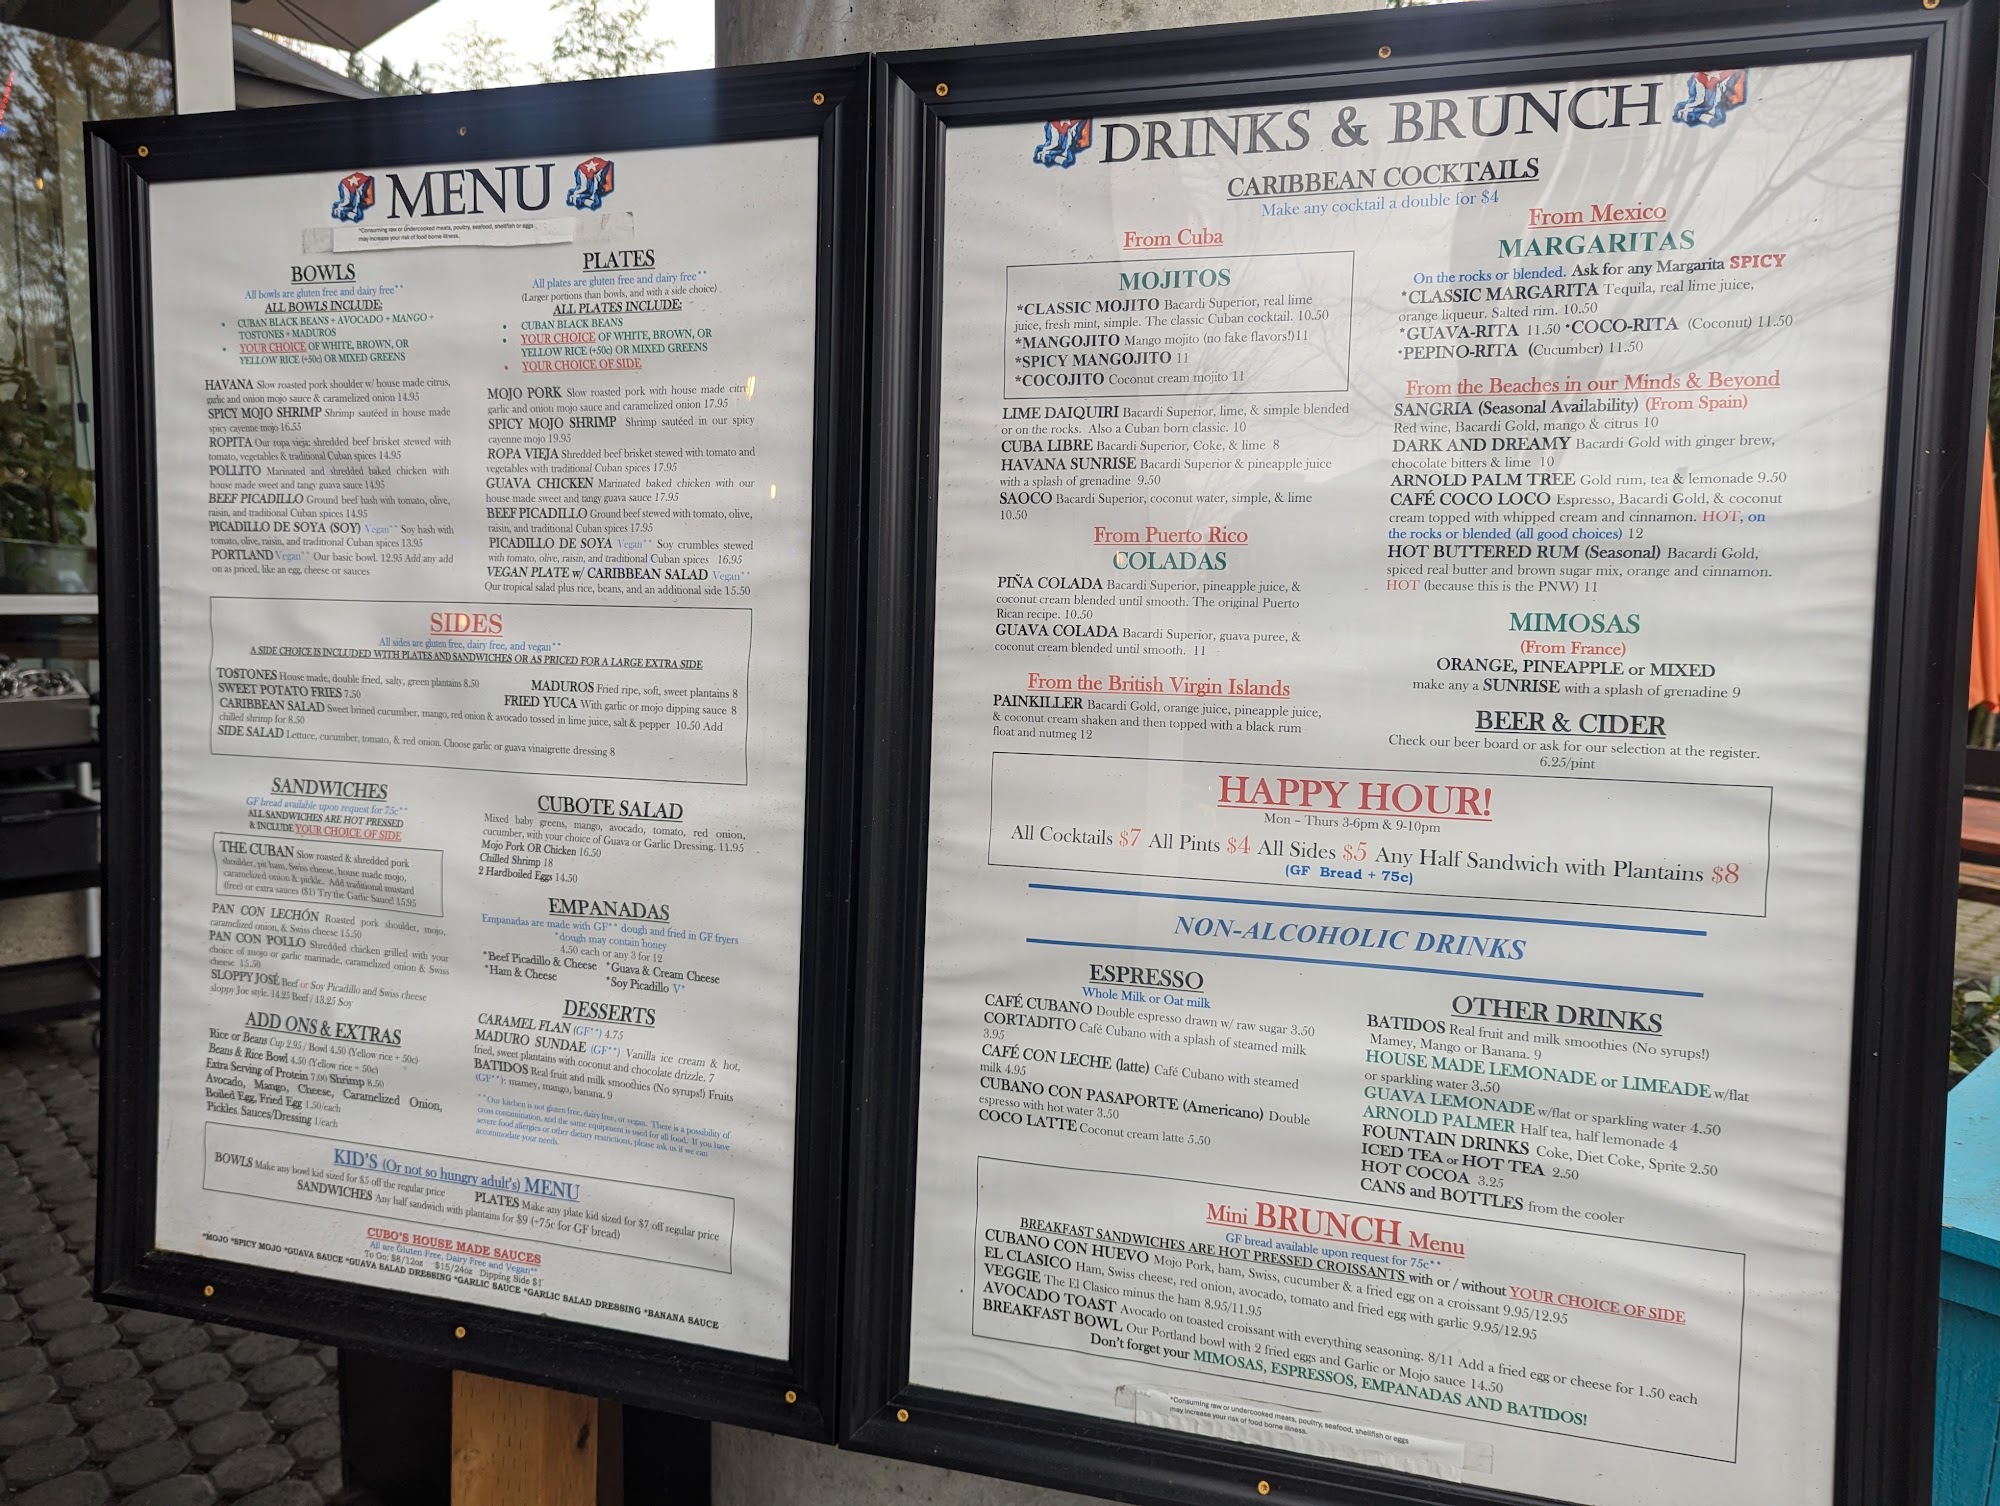 MENU
*Consuming raw or undercooked meats, poultry, seafood, shellfish or eggs
may increase your risk of food borne illness.
BOWLS
All bowls are gluten free and dairy free**
ALL BOWLS INCLUDE:
• CUBAN BLACK BEANS + AVOCADO + MANGO +
TOSTONES + MADUROS
• YOUR CHOICE OF WHITE, BROWN, OR
YELLOW RICE (+50c) OR MIXED GREENS
HAVANA Slow roasted pork shoulder w/ house made citrus,
garlic and onion mojo sauce & caramelized onion 14.95
SPICY MOJO SHRIMP Shrimp sautéed in house made
spicy cayenne mojo 16.55
ROPITA Our ropa vieja: shredded beef brisket stewed with
tomato, vegetables & traditional Cuban spices 14.95
POLLITO Marinated and shredded baked chicken with
house made sweet and tangy guava sauce 14.95
BEEF PICADILLO Ground beef hash with tomato, olive,
raisin, and traditional Cuban spices 14.95
PICADILLO DE SOYA (SOY) Vegan** Soy hash with
tomato, olive, raisin, and traditional Cuban spices 13.95
PORTLAND Vegan** Our basic bowl. 12.95 Add any add
on as priced, like an egg, cheese or sauces
PLATES
All plates are gluten free and dairy free**
(Larger portions than bowls, and with a side choice)
ALL PLATES INCLUDE:
• CUBAN BLACK BEANS
• YOUR CHOICE OF WHITE, BROWN, OR
YELLOW RICE (+50c) OR MIXED GREENS
• YOUR CHOICE OF SIDE
MOJO PORK Slow roasted pork with house made citrus,
garlic and onion mojo sauce and caramelized onion 17.95
SPICY MOJO SHRIMP Shrimp sautéed in our spicy
cayenne mojo 19.95
ROPA VIEJA Shredded beef brisket stewed with tomato and
vegetables with traditional Cuban spices 17.95
GUAVA CHICKEN Marinated baked chicken with our
house made sweet and tangy guava sauce 17.95
BEEF PICADILLO Ground beef stewed with tomato, olive,
raisin, and traditional Cuban spices 17.95
PICADILLO DE SOYA Vegan** Soy crumbles stewed
with tomato, olive, raisin, and traditional Cuban spices 16.95
VEGAN PLATE w/ CARIBBEAN SALAD Vegan**
Our tropical salad plus rice, beans, and an additional side 15.50
SIDES
All sides are gluten free, dairy free, and vegan**
A SIDE CHOICE IS INCLUDED WITH PLATES AND SANDWICHES OR AS PRICED FOR A LARGE EXTRA SIDE
TOSTONES House made, double fried, salty, green plantains 8.50
MADUROS Fried ripe, soft, sweet plantains 8
SWEET POTATO FRIES 7.50
FRIED YUCA With garlic or mojo dipping sauce 8
CARIBBEAN SALAD Sweet brined cucumber, mango, red onion & avocado tossed in lime juice, salt & pepper 10.50 Add
chilled shrimp for 8.50
SIDE SALAD Lettuce, cucumber, tomato, & red onion. Choose garlic or guava vinaigrette dressing 8
SANDWICHES
GF bread available upon request for 75c**
ALL SANDWICHES ARE HOT PRESSED
& INCLUDE YOUR CHOICE OF SIDE
THE CUBAN Slow roasted & shredded pork
shoulder, pit ham, Swiss cheese, house made mojo,
caramelized onion & pickle. Add traditional mustard
(free) or extra sauces ($1) Try the Garlic Sauce! 15.95
PAN CON LECHÓN Roasted pork shoulder, mojo,
caramelized onion, & Swiss cheese 15.50
PAN CON POLLO Shredded chicken grilled with your
choice of mojo or garlic marinade, caramelized onion & Swiss
cheese 15.50
SLOPPY JOSÉ Beef or Soy Picadillo and Swiss cheese
sloppy Joe style. 14.25 Beef / 13.25 Soy
ADD ONS & EXTRAS
Rice or Beans Cup 2.95 / Bowl 4.50 (Yellow rice + 50c)
Beans & Rice Bowl 4.50 (Yellow rice + 50c)
Extra Serving of Protein 7.00 Shrimp 8.50
Avocado, Mango, Cheese, Caramelized Onion,
Boiled Egg, Fried Egg 1.50/each
Pickles. Sauces/Dressing 1/each
CUBOTE SALAD
Mixed baby greens, mango, avocado, tomato, red onion,
cucumber, with your choice of Guava or Garlic Dressing. 11.95
Mojo Pork OR Chicken 16.50
Chilled Shrimp 18
2 Hardboiled Eggs 14.50
EMPANADAS
Empanadas are made with GF** dough and fried in GF fryers
*dough may contain honey
4.50 each or any 3 for 12
*Beef Picadillo & Cheese *Guava & Cream Cheese
*Ham & Cheese *Soy Picadillo V*
DESSERTS
CARAMEL FLAN (GF**) 4.75
MADURO SUNDAE (GF**) Vanilla ice cream & hot,
fried, sweet plantains with coconut and chocolate drizzle. 7
BATIDOS Real fruit and milk smoothies (No syrups!) Fruits
(GF**): mamey, mango, banana. 9
**Our kitchen is not gluten free, dairy free, or vegan. There is a possibility of
cross contamination, and the same equipment is used for all food. If you have
severe food allergies or other dietary restrictions, please ask us if we can
accommodate your needs.
KID'S (Or not so hungry adult's) MENU
BOWLS Make any bowl kid sized for $5 off the regular price
PLATES Make any plate kid sized for $7 off regular price
SANDWICHES Any half sandwich with plantains for $9 (+75c for GF bread)
CUBO'S HOUSE MADE SAUCES
All are Gluten Free, Dairy Free and Vegan**
To Go: $8/12oz $15/24oz Dipping Side $1
*MOJO *SPICY MOJO *GUAVA SAUCE *GUAVA SALAD DRESSING *GARLIC SAUCE *GARLIC SALAD DRESSING *BANANA SAUCE
DRINKS & BRUNCH
CARIBBEAN COCKTAILS
Make any cocktail a double for $4
From Cuba
MOJITOS
*CLASSIC MOJITO Bacardi Superior, real lime
juice, fresh mint, simple. The classic Cuban cocktail. 10.50
*MANGOJITO Mango mojito (no fake flavors!)11
*SPICY MANGOJITO 11
*COCOJITO Coconut cream mojito 11
LIME DAIQUIRI Bacardi Superior, lime, & simple blended
or on the rocks. Also a Cuban born classic. 10
CUBA LIBRE Bacardi Superior, Coke, & lime 8
HAVANA SUNRISE Bacardi Superior & pineapple juice
with a splash of grenadine 9.50
SAOCO Bacardi Superior, coconut water, simple, & lime
10.50
From Puerto Rico
COLADAS
PIÑA COLADA Bacardi Superior, pineapple juice, &
coconut cream blended until smooth. The original Puerto
Rican recipe. 10.50
GUAVA COLADA Bacardi Superior, guava puree, &
coconut cream blended until smooth. 11
From the British Virgin Islands
PAINKILLER Bacardi Gold, orange juice, pineapple juice,
& coconut cream shaken and then topped with a black rum
float and nutmeg 12
From Mexico
MARGARITAS
On the rocks or blended. Ask for any Margarita SPICY
*CLASSIC MARGARITA Tequila, real lime juice,
orange liqueur. Salted rim. 10.50
*GUAVA-RITA 11.50 *COCO-RITA (Coconut) 11.50
*PEPINO-RITA (Cucumber) 11.50
From the Beaches in our Minds & Beyond
SANGRIA (Seasonal Availability) (From Spain)
Red wine, Bacardi Gold, mango & citrus 10
DARK AND DREAMY Bacardi Gold with ginger brew,
chocolate bitters & lime 10
ARNOLD PALM TREE Gold rum, tea & lemonade 9.50
CAFÉ COCO LOCO Espresso, Bacardi Gold, & coconut
cream topped with whipped cream and cinnamon. HOT, on
the rocks or blended (all good choices) 12
HOT BUTTERED RUM (Seasonal) Bacardi Gold,
spiced real butter and brown sugar mix, orange and cinnamon.
HOT (because this is the PNW) 11
MIMOSAS
(From France)
ORANGE, PINEAPPLE or MIXED
make any a SUNRISE with a splash of grenadine 9
BEER & CIDER
Check our beer board or ask for our selection at the register.
6.25/pint
HAPPY HOUR!
Mon – Thurs 3-6pm & 9-10pm
All Cocktails $7 All Pints $4 All Sides $5 Any Half Sandwich with Plantains $8
(GF Bread + 75c)
NON-ALCOHOLIC DRINKS
ESPRESSO
Whole Milk or Oat milk
CAFÉ CUBANO Double espresso drawn w/ raw sugar 3.50
CORTADITO Café Cubano with a splash of steamed milk
3.95
CAFÉ CON LECHE (latte) Café Cubano with steamed
milk 4.95
CUBANO CON PASAPORTE (Americano) Double
espresso with hot water 3.50
COCO LATTE Coconut cream latte 5.50
OTHER DRINKS
BATIDOS Real fruit and milk smoothies (No syrups!)
Mamey, Mango or Banana. 9
HOUSE MADE LEMONADE or LIMEADE w/flat
or sparkling water 3.50
GUAVA LEMONADE w/flat or sparkling water 4.50
ARNOLD PALMER Half tea, half lemonade 4
FOUNTAIN DRINKS Coke, Diet Coke, Sprite 2.50
ICED TEA or HOT TEA 2.50
HOT COCOA 3.25
CANS and BOTTLES from the cooler
Mini BRUNCH Menu
GF bread available upon request for 75c**
BREAKFAST SANDWICHES ARE HOT PRESSED CROISSANTS with or / without YOUR CHOICE OF SIDE
CUBANO CON HUEVO Mojo Pork, ham, Swiss, cucumber & a fried egg on a croissant 9.95/12.95
EL CLASICO Ham, Swiss cheese, red onion, avocado, tomato and fried egg with garlic 9.95/12.95
VEGGIE The El Clasico minus the ham 8.95/11.95
AVOCADO TOAST Avocado on toasted croissant with everything seasoning. 8/11 Add a fried egg or cheese for 1.50 each
BREAKFAST BOWL Our Portland bowl with 2 fried eggs and Garlic or Mojo sauce 14.50
Don't forget your MIMOSAS, ESPRESSOS, EMPANADAS AND BATIDOS!
*Consuming raw or undercooked meats, poultry, seafood, shellfish or eggs
may increase your risk of food borne illness.